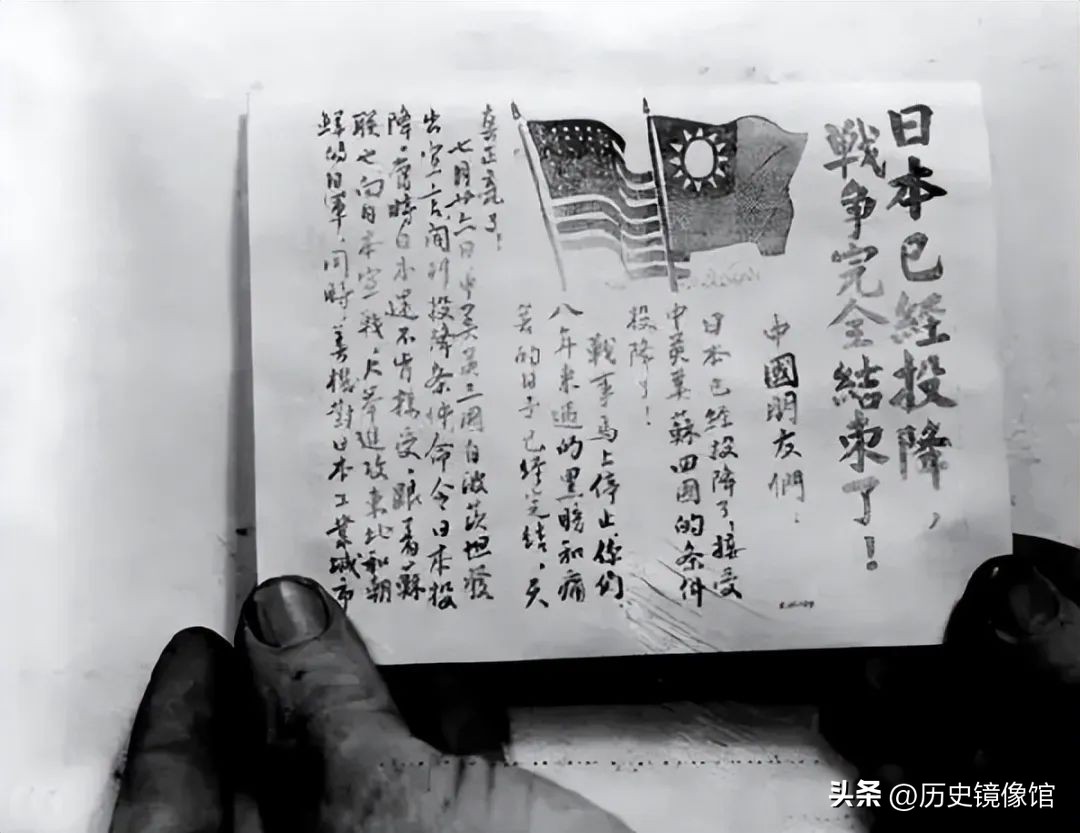 日本已経投降，
戦争完全結束了！
中國朋友們：
日本已経投降了，接受
中英美蘇四国的条件
投降了！
戰事馬上停止，你们
八年来過的黑暗和痛
苦的日子已経完結，天
真正亮了！
七月廿六日中美英三国自波茨坦發
出宣言，開列投降条件命令日本投
降，當時日本還不肯接受，跟着蘇
联也向日本宣戰，大举進攻東北和朝
鮮的日軍，同時，美機對日本工業城市
头条 @历史镜像馆